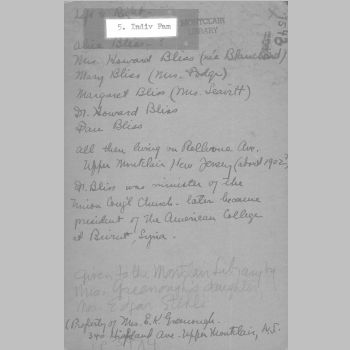 Left to Right.
5. Indiv Fam
MONTCLAIR
LIBRARY
Alice Bliss - ?
Mrs. Howard Bliss (née Blanchard)
Mary Bliss (Mrs. Dodge)
Margaret Bliss (Mrs. Leavitt)
Dr. Howard Bliss
Dan Bliss
all then living on Bellevue Ave.
Upper Montclair New Jersey (about 1902?)
Dr. Bliss was minister of the
Union Cong'l Church - later became
president of the American College
at Beirut, Syria.
Given to the Montclair Library by
Mrs. Greenough's daughter
Mrs. Edgar
(Property of Mrs. E.K. Greenough.
340 Highland Ave. Upper Montclair, N.J.